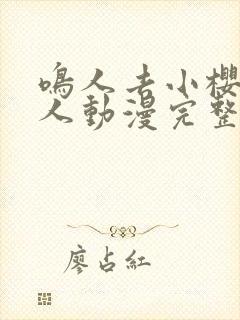 鳴人去小櫻
人動漫完整
廖占紅